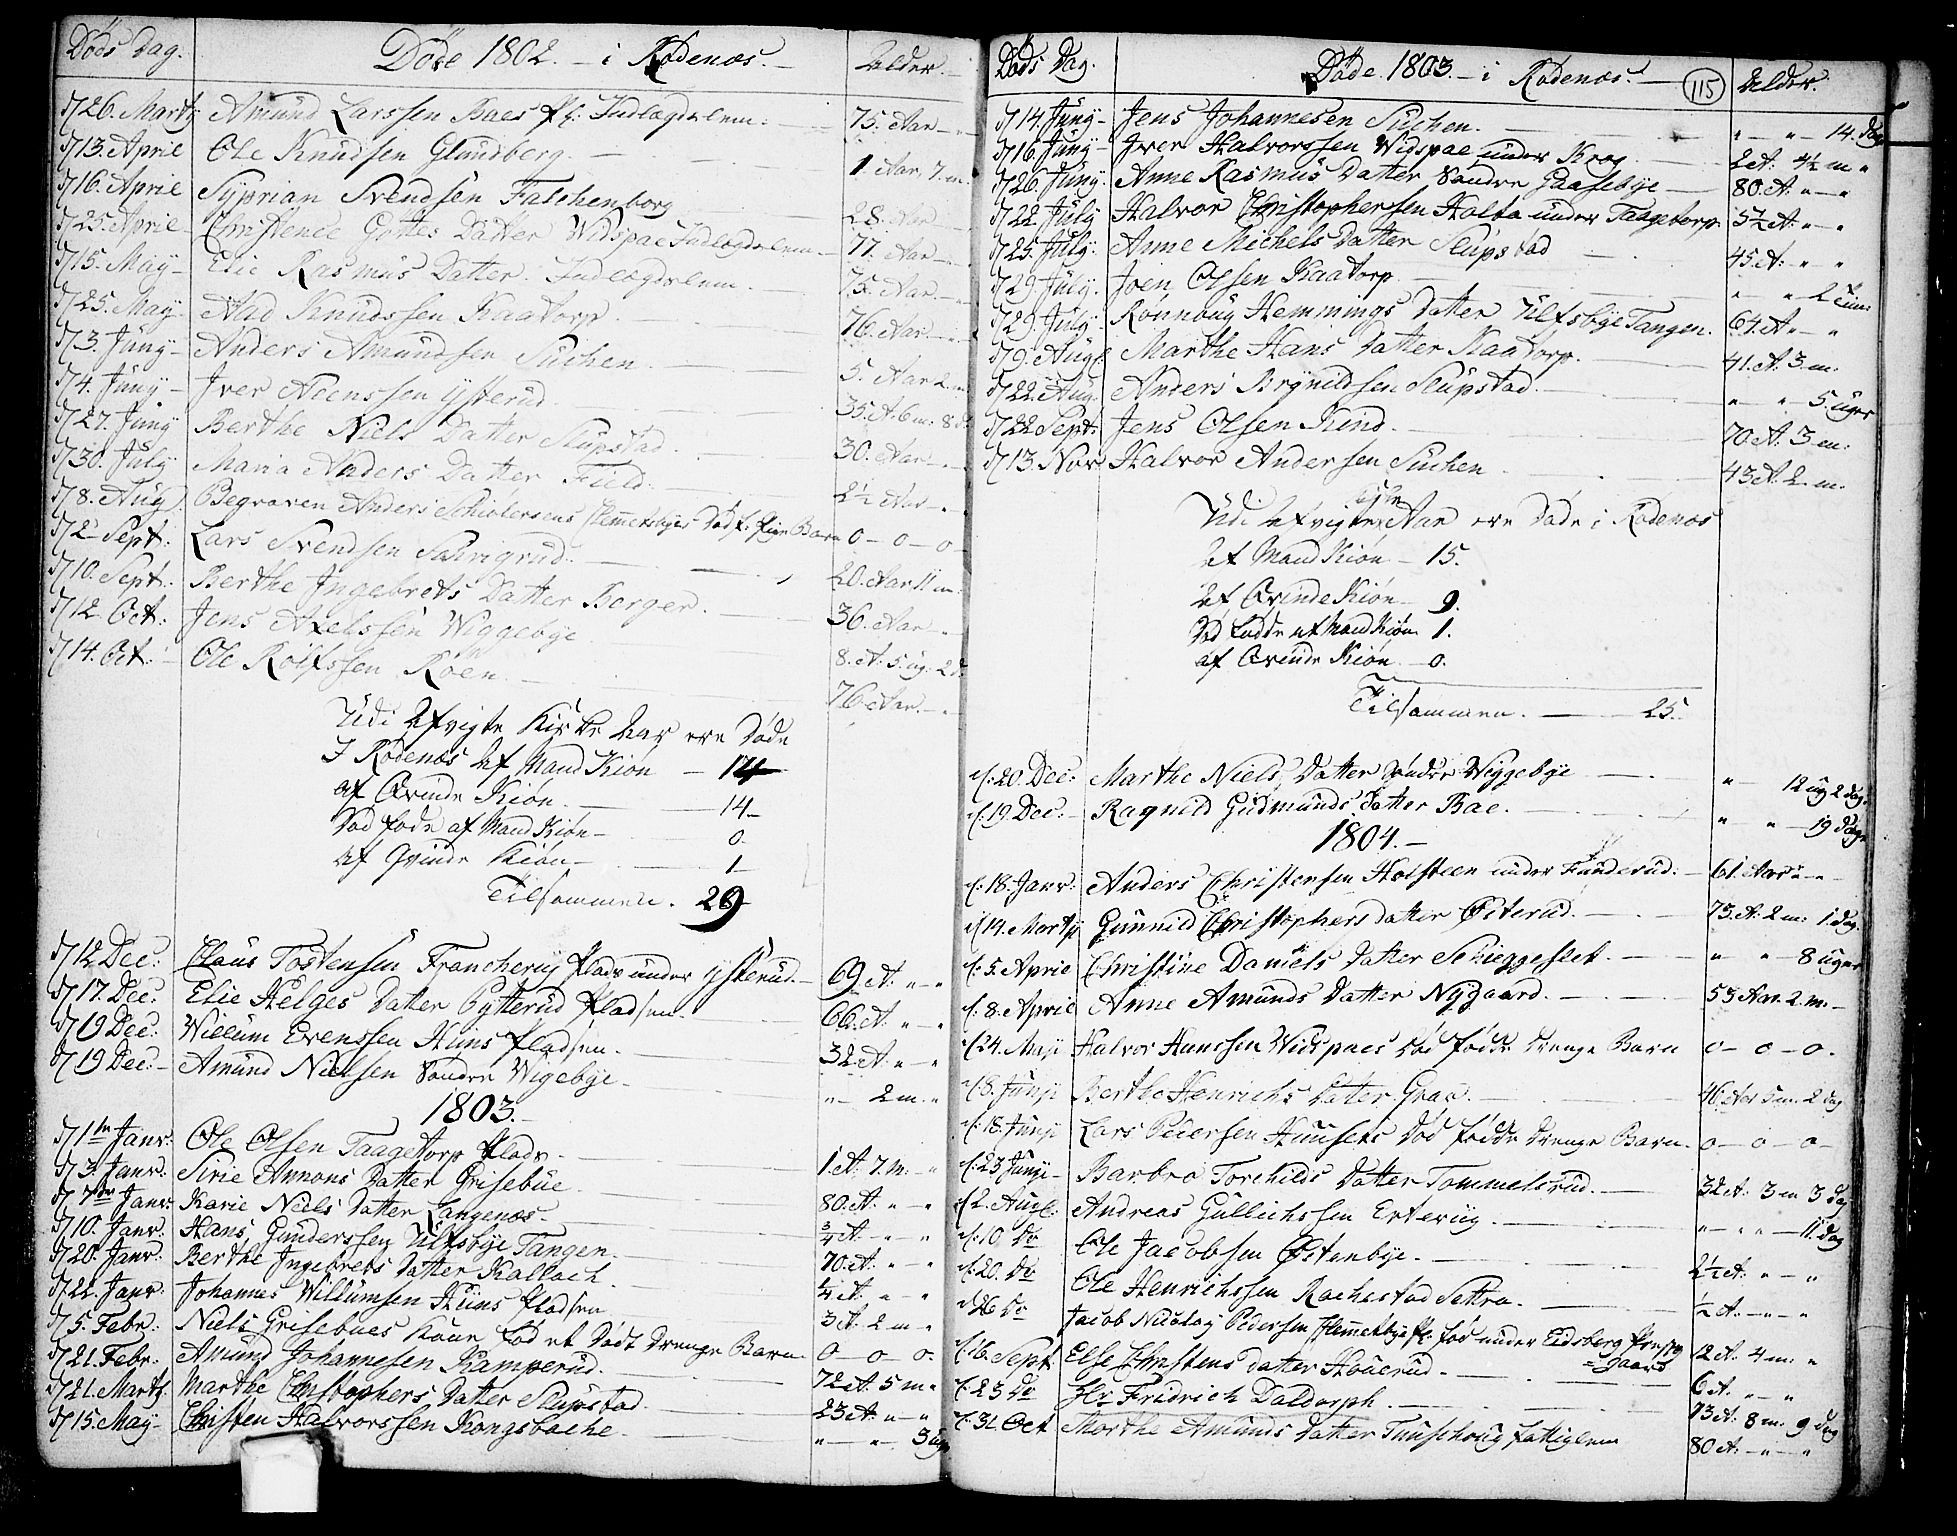 Døds Dag. Døde 1802. – i Rødenæs. – Alder. –
D/26. Martj Amund Larssen Baes Pl: Indlægdslem. 75. Aar –
D/13. April Ole Knudsen Glundberg. – 1. Aar, 7. m.
D/16. April Syprian Svendsen Falchenborg 28. Aar
D/25. April Christence Gottes Datter Widspae Indlægdslem – 77. Aar –
D/15. May – Elie Rasmus Datter Indlægdslem. 75. Aar. –
D/25. May – Aad Knudssen Kaatorp 76. Aar –
D/3. Juny – Anders Amundsen Suchen 5. Aar 2. m
D/4. Juny – Iver Adenssen Ysterud 35. A. 6 m: 8 d.
D/27. Juny Berthe Niels Datter Slupstad. 30. Aar –
D/30. July Maria Anders Datter Field. 2½ Aar –
D/8. Aug Begraven Anders Schiølersens Slemmebyes Død f. Barn 0 – 0 – 0
D/2 Sept: Lars Svendsen 20. Aar 11 m.
D/10. Sept: Berthe Ingebrets Datter Berger. 36. Aar –
D/12. Oct: Jens Axelssen Wiggebye 8. A. 5. ug. 2 d.
D/14. Oct: Ole Rolfssen Røen. 76 Aar. –
Udi Afvigte Kirke Aar ere Døde
I Rødenæs Af Mand Kiøn – 14
af Qvinde Kiøn. – 14 –
Død fødde af Mand Kiøn – 0.
Af Qvinde Kiøn – 1
Tilsammen. 29
D/12 Dec: Claus Tostensen Francherug Plads under Ysterud. – 69. A. " – "
D/17. Dec: Elie Helges Datter Pytterud Pladsen. 66. A. " – "
D/19 Dec: Willum Evenssen Huns Pladsen. 32 A. " – "
D/19 Dec: – Amund Nielsen Søndre Wigebye. " – 2 m. "
1803. –
D/1ste Janr: Ole Olsen Taagetorp Plads – 1. A. 7. m. – "
D/3. Janr: Sirie Amons Datter Grisebue 80. A. " – "
D/7de Janr: Karie Niels Datter Langenæs – ¾ A. – " "
D/10. Janr: Hans Gunderssen Ulfsbye Tangen. 70. A. " – "
D/20. Janr: Berthe Ingebrets Datter Kallach. 4 A. " – "
D/22. Janr: Johannes Willumsen Huns Pladsen 3 A. 2 m – "
D/5. Febr: Niels Grisebues Kone Fød et Dødt Drenge Barn 0 – 0 – 0.
D/21. Febr: Amund Johannesen Kamperud. 72 A. 5 m "
D/21. Martj. Marthe Christophers Datter Slupstad 23 A. " – "
D/15. May – Christen Halvorssen Kongsbache " – " 3 uger
Døds Dag. Døde. 1803. – i Rødenæs. – 115 Alder.
D/14. Juny – Jens Johannesen Suchen. " – " – 14. Dage
D/16. Juny – Iver Halvorssen Widspae under Krog 2 A. 4½ m "
D/26. Juny. Anne Rasmus Datter Søndre Gaasebye – 80. A. " – "
D/22. July Halvor Christophersen Holta under Taagetorp. 5½ A. " – "
D/25. July. Anne Michels Datter Slupstad 45 A. " – "
D/29 July. Joen Olsen Kaatorp – " – " – 2 Tim:
D/29. July. Rønnoug Hemmings Datter Ulfsbye Tangen. 64. A " – "
D/9. Aug: Marthe Hans Datter Kaatorp. 41. A. 3. m.
D/22. Aug. Anders Brynildsen Slupstad. " – " 5 uger
D/22 Sept: Jens Olsen Kind. 70. A. 3 m.
D/13. Nov Halvor Andersen Suchen 43 A. 2 m.
Udi Afvigte Kirke Aar ere Døde i Rødenæs
Af Mand Kiøn – 15.
Af Qvinde Kiøn 9.
Død fødde af Mand Kiøn 1.
af Qvinde Kiøn – 0.
Tilsammen. – 25.
d: 20. Dec: Marthe Niels Datter Søndre Wiggebye " 12 ug 2 dag.
d: 19. Dec: – Ragnild Gudmunds Datter Bae. " " – 19 Dage
1804. –
d: 18. Janr: Anders Christensen Holsteen under Funderud. – 61. Aar " – "
d/14. Martj Gunnild Christophersdatter Østerud. – 73. A. 2 m: 1 dag.
d: 5. April Christine Daniels Datter Schieggeslet. – " – " 8 uger
d: 8. April Anne Amunds Datter Nygaard. – 53 Aar. 2. m. –
d/24. Maji Halvor Hanssen Widspaes Død fødde Drenge Barn 0 – 0 – 0.
d: 8. Junji Berthe Henrichs Datter Graa. 46. Aar 5 m. 2 dag
d: 18. Junji Lars Pedersen Huusets Død fødde Drenge Barn. 0 – 0 – 0 –
d: 23 Junji – Barbro Torchilds Datter Tommelsrud. – 32 A. 3 m 3 dag
d: 2. Aug: Andreas Gullichssen Erterug. – " – " – 11 dag
d: 10. Do Ole Jacobsen Østenbye. – 2½ A: " – "
d: 20. Do Ole Henrichssen Rachestad Sættra. ½ A. – " – "
d: 26 Do Jacob Nicolay Pedersen Slemmebye Pl: fød under Eidsberg Præste 12 A. 4 m: "
= gaard
d: 16. Sept Else Christens datter Houerud. – 6 A. " – "
d: 23 Do Hr Fridrich Daldorph. – 73 A: 8 m: 9 dag
d: 31 Oct Marthe Amunds Datter Tuusehoug fattiglem 80 A. – " – "